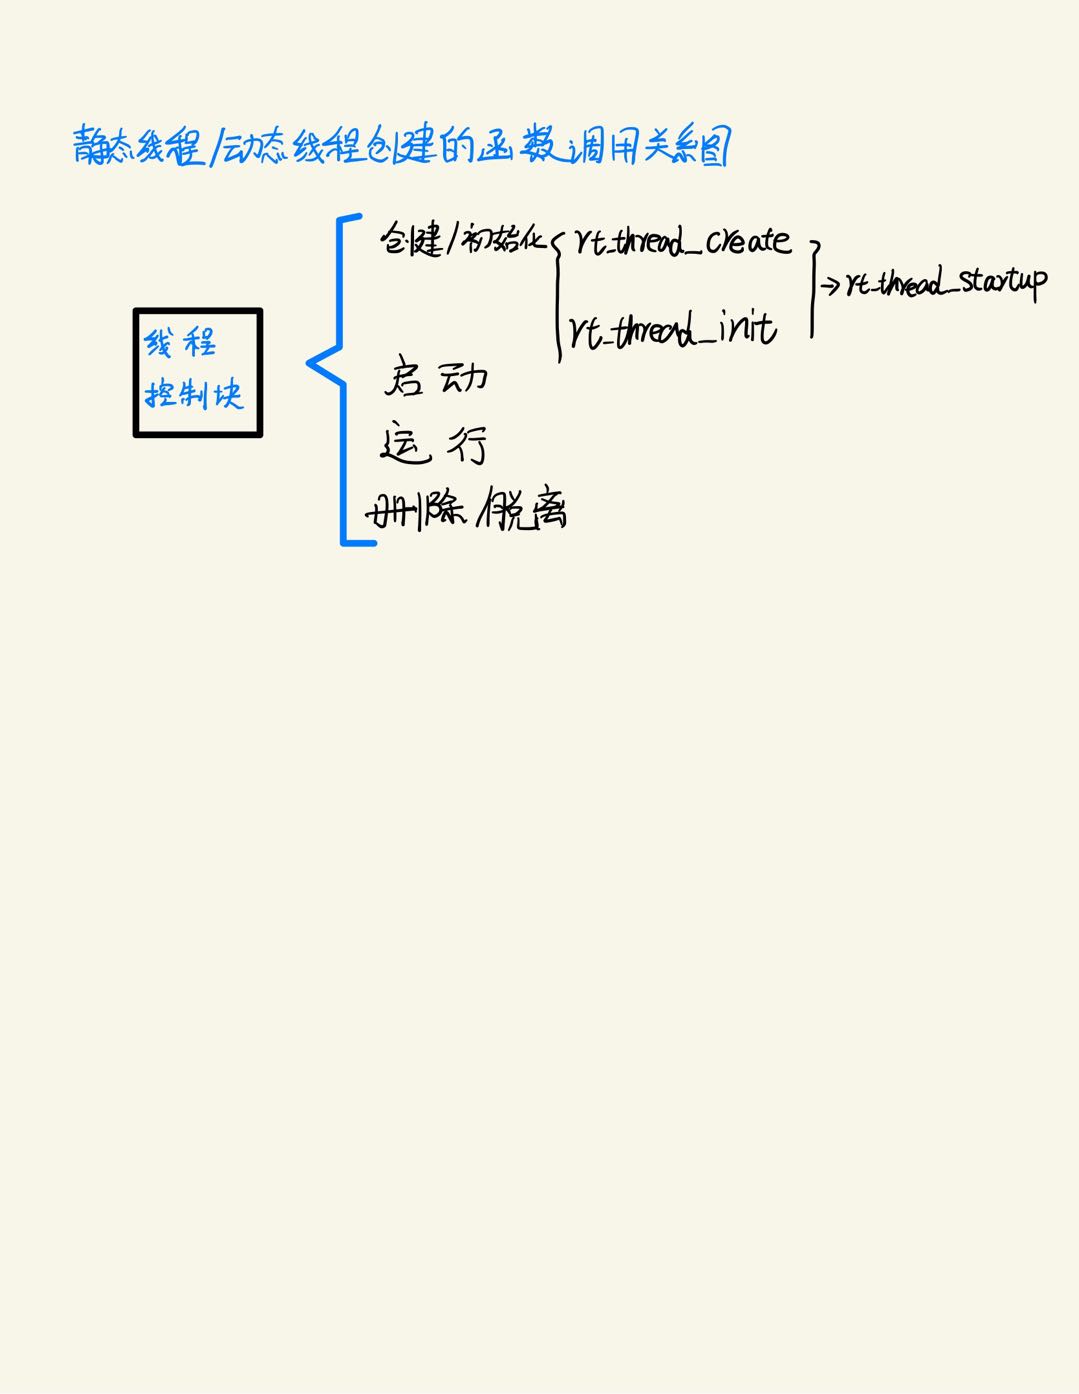 静态线程/动态线程创建的函数调用关系图
线程
控制块
创建/初始化
rt_thread_create
rt_thread_init
→rt_thread_startup
启动
运行
删除/脱离